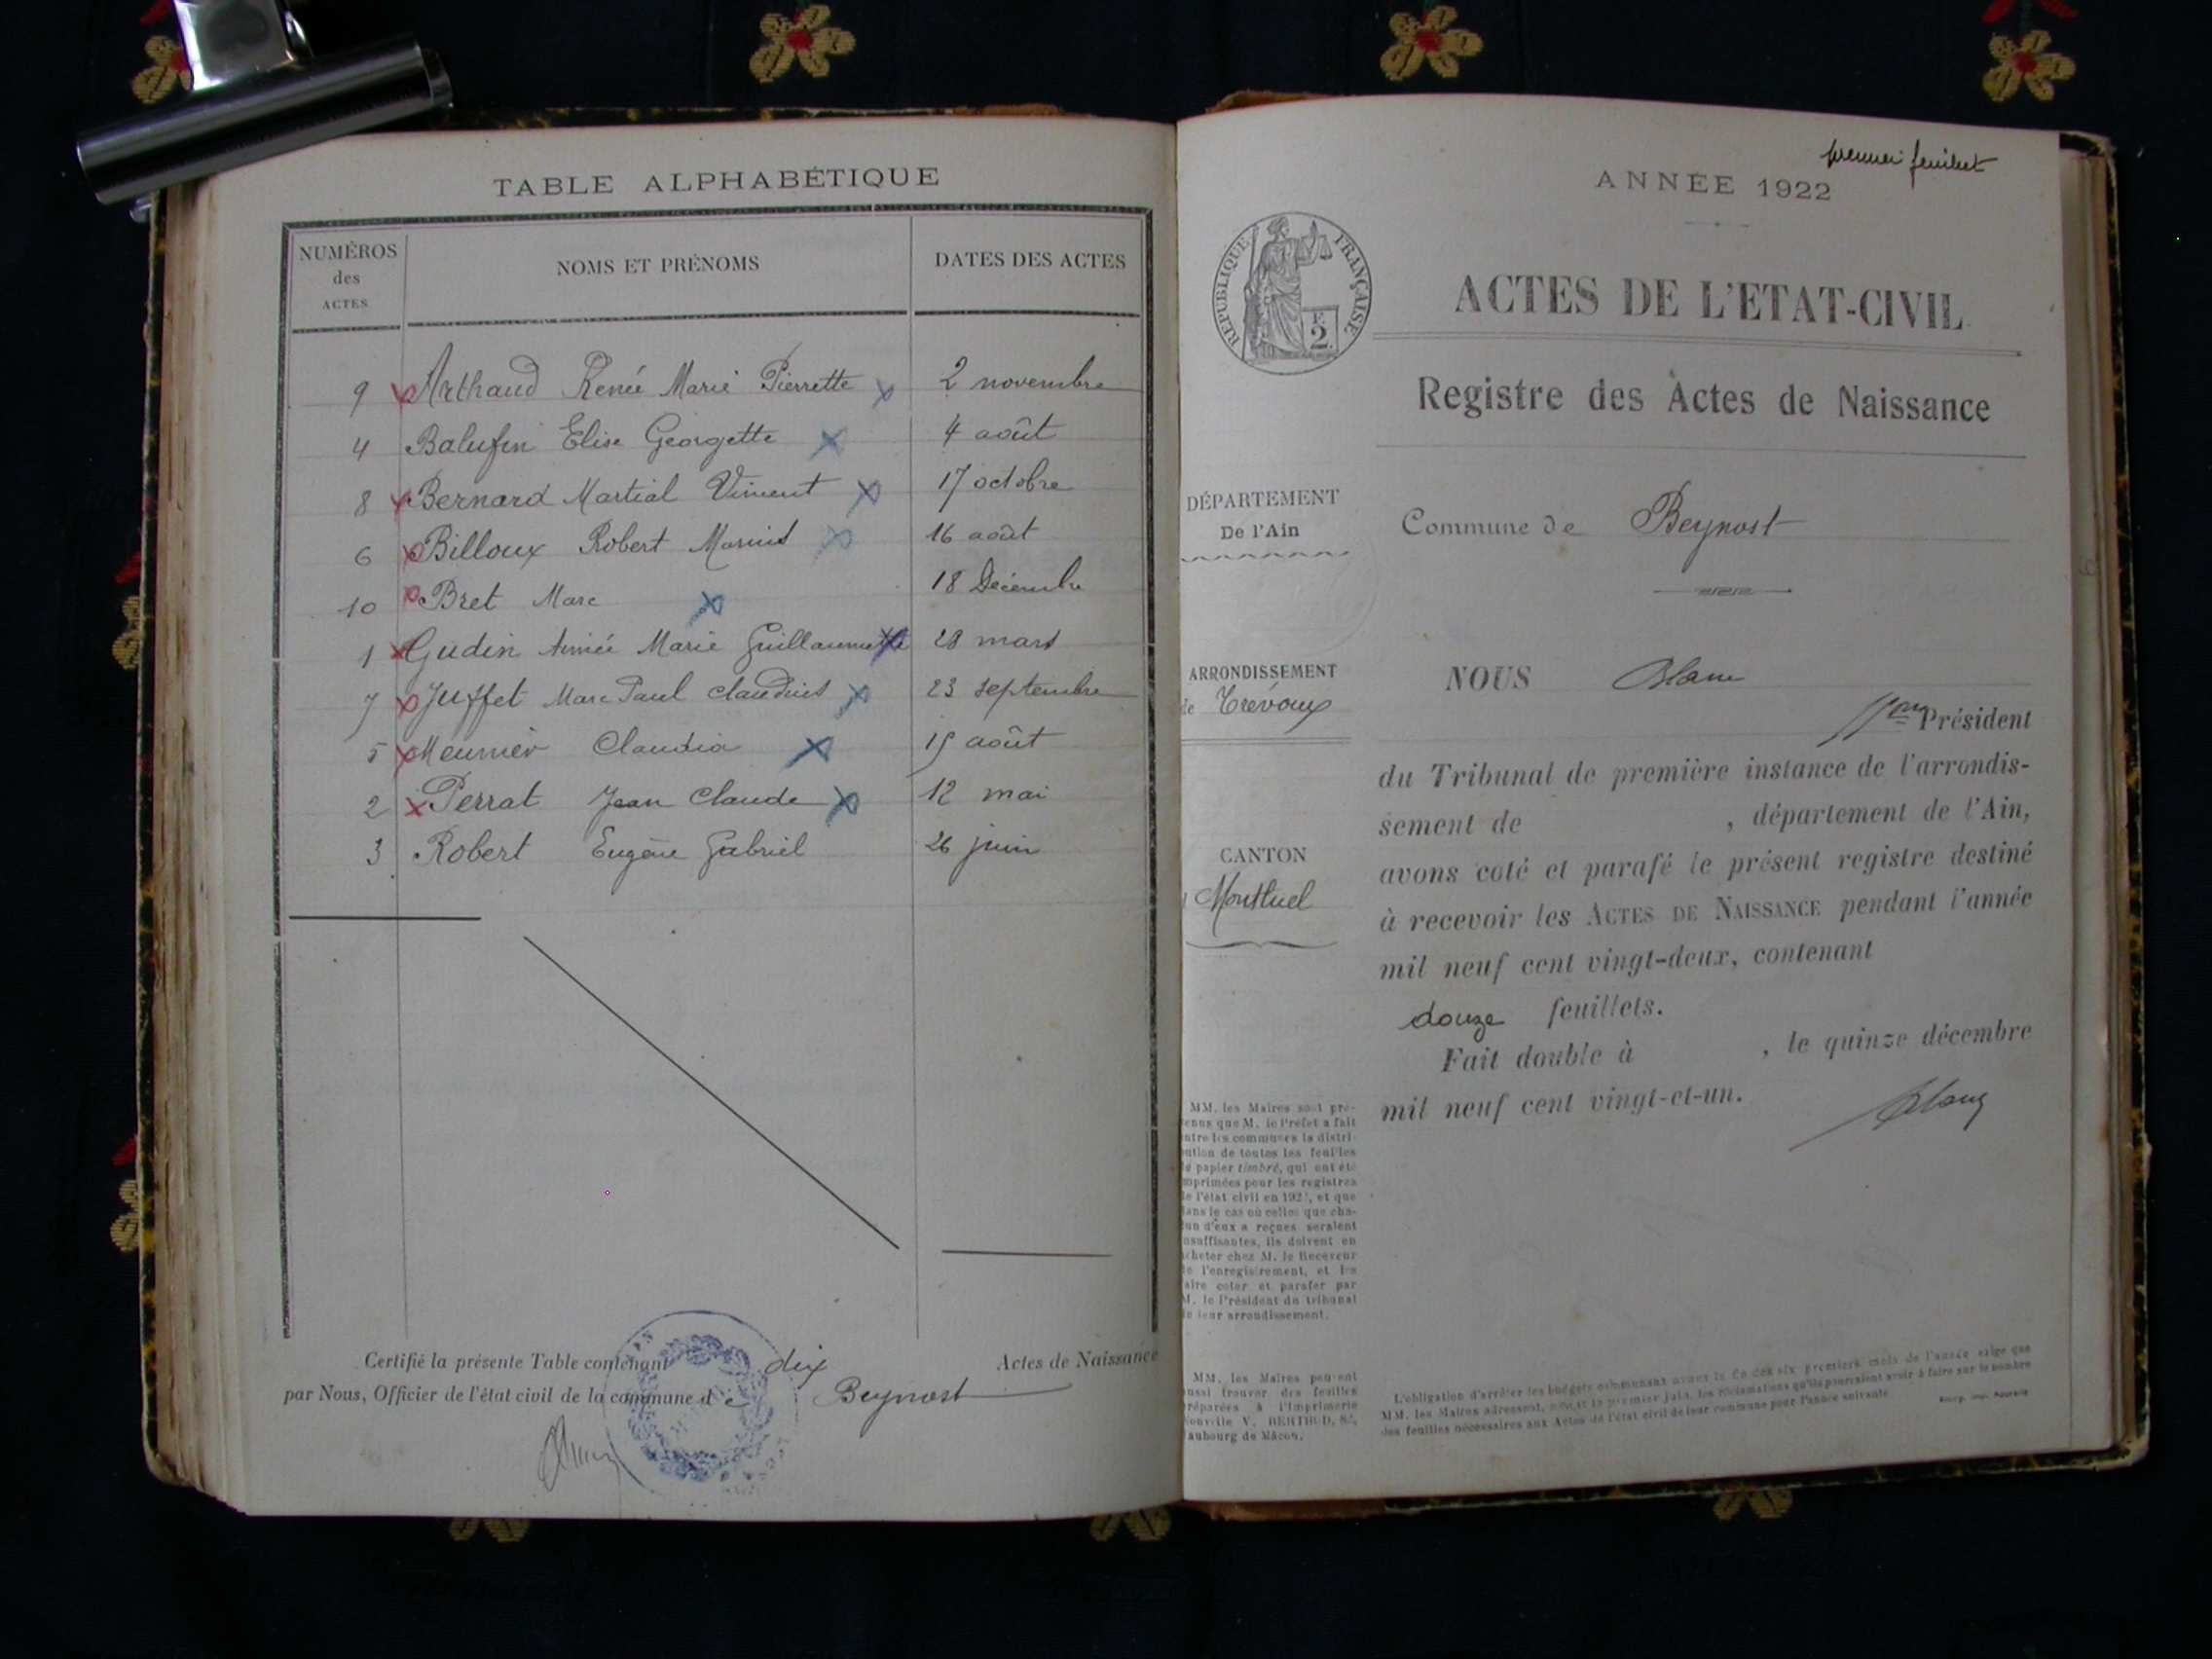 TABLE ALPHABÉTIQUE
NUMÉROS
des
ACTES
NOMS ET PRÉNOMS
DATES DES ACTES
9 Arthaud Renée Marie Pierrette 2 novembre
4 Balufin Elise Georgette 4 août
8 Bernard Martial Vincent 17 octobre
6 Billoux Robert Marius 16 août
10 Bret Marc 18 Décembre
1 Gudin Aimée Marie Guillaumette 28 mars
7 Juffet Marc Paul Claudius 23 septembre
5 Meunier Claudia 15 août
2 Perrat Jean Claude 12 mai
3 Robert Eugène Gabriel 26 juin
Certifié la présente Table contenant dix Actes de Naissance
par Nous, Officier de l'état civil de la commune de Beynost
premier feuillet
ANNÉE 1922
RÉPUBLIQUE FRANÇAISE
F.
2
ACTES DE L'ETAT-CIVIL
Registre des Actes de Naissance
DÉPARTEMENT
De l'Ain
Commune de Beynost
ARRONDISSEMENT
de Trévoux
CANTON
Montluel
NOUS Blanc
Président
du Tribunal de première instance de l'arrondis-
sement de , département de l'Ain,
avons coté et parafé le présent registre destiné
à recevoir les ACTES DE NAISSANCE pendant l'année
mil neuf cent vingt-deux, contenant
douze feuillets.
Fait double à , le quinze décembre
mil neuf cent vingt-et-un.
Blanc
MM. les Maires sont pré-
que M. le Préfet a fait
les communes la distri-
de toutes les feuilles
papier timbré, qui ont été
pour les registres
l'état civil en 192 , et que
le cas où celles que cha-
d'eux a reçues seraient
ils doivent en
chez M. le Receveur
l'enregistrement, et les
coter et parafer par
M. le Président du tribunal
leur arrondissement.
MM. les Maires peuvent
trouver des feuilles
à l'Imprimerie
V. BERTHOD, 82,
de Mâcon.
L'obligation d'arrêter les budgets communaux avant la fin des six premiers mois de l'année exige que
MM. les Maires adressent, avant le premier juin, les réclamations qu'ils pourraient avoir à faire sur le nombre
des feuilles nécessaires aux Actes de l'état civil de leur commune pour l'année suivante